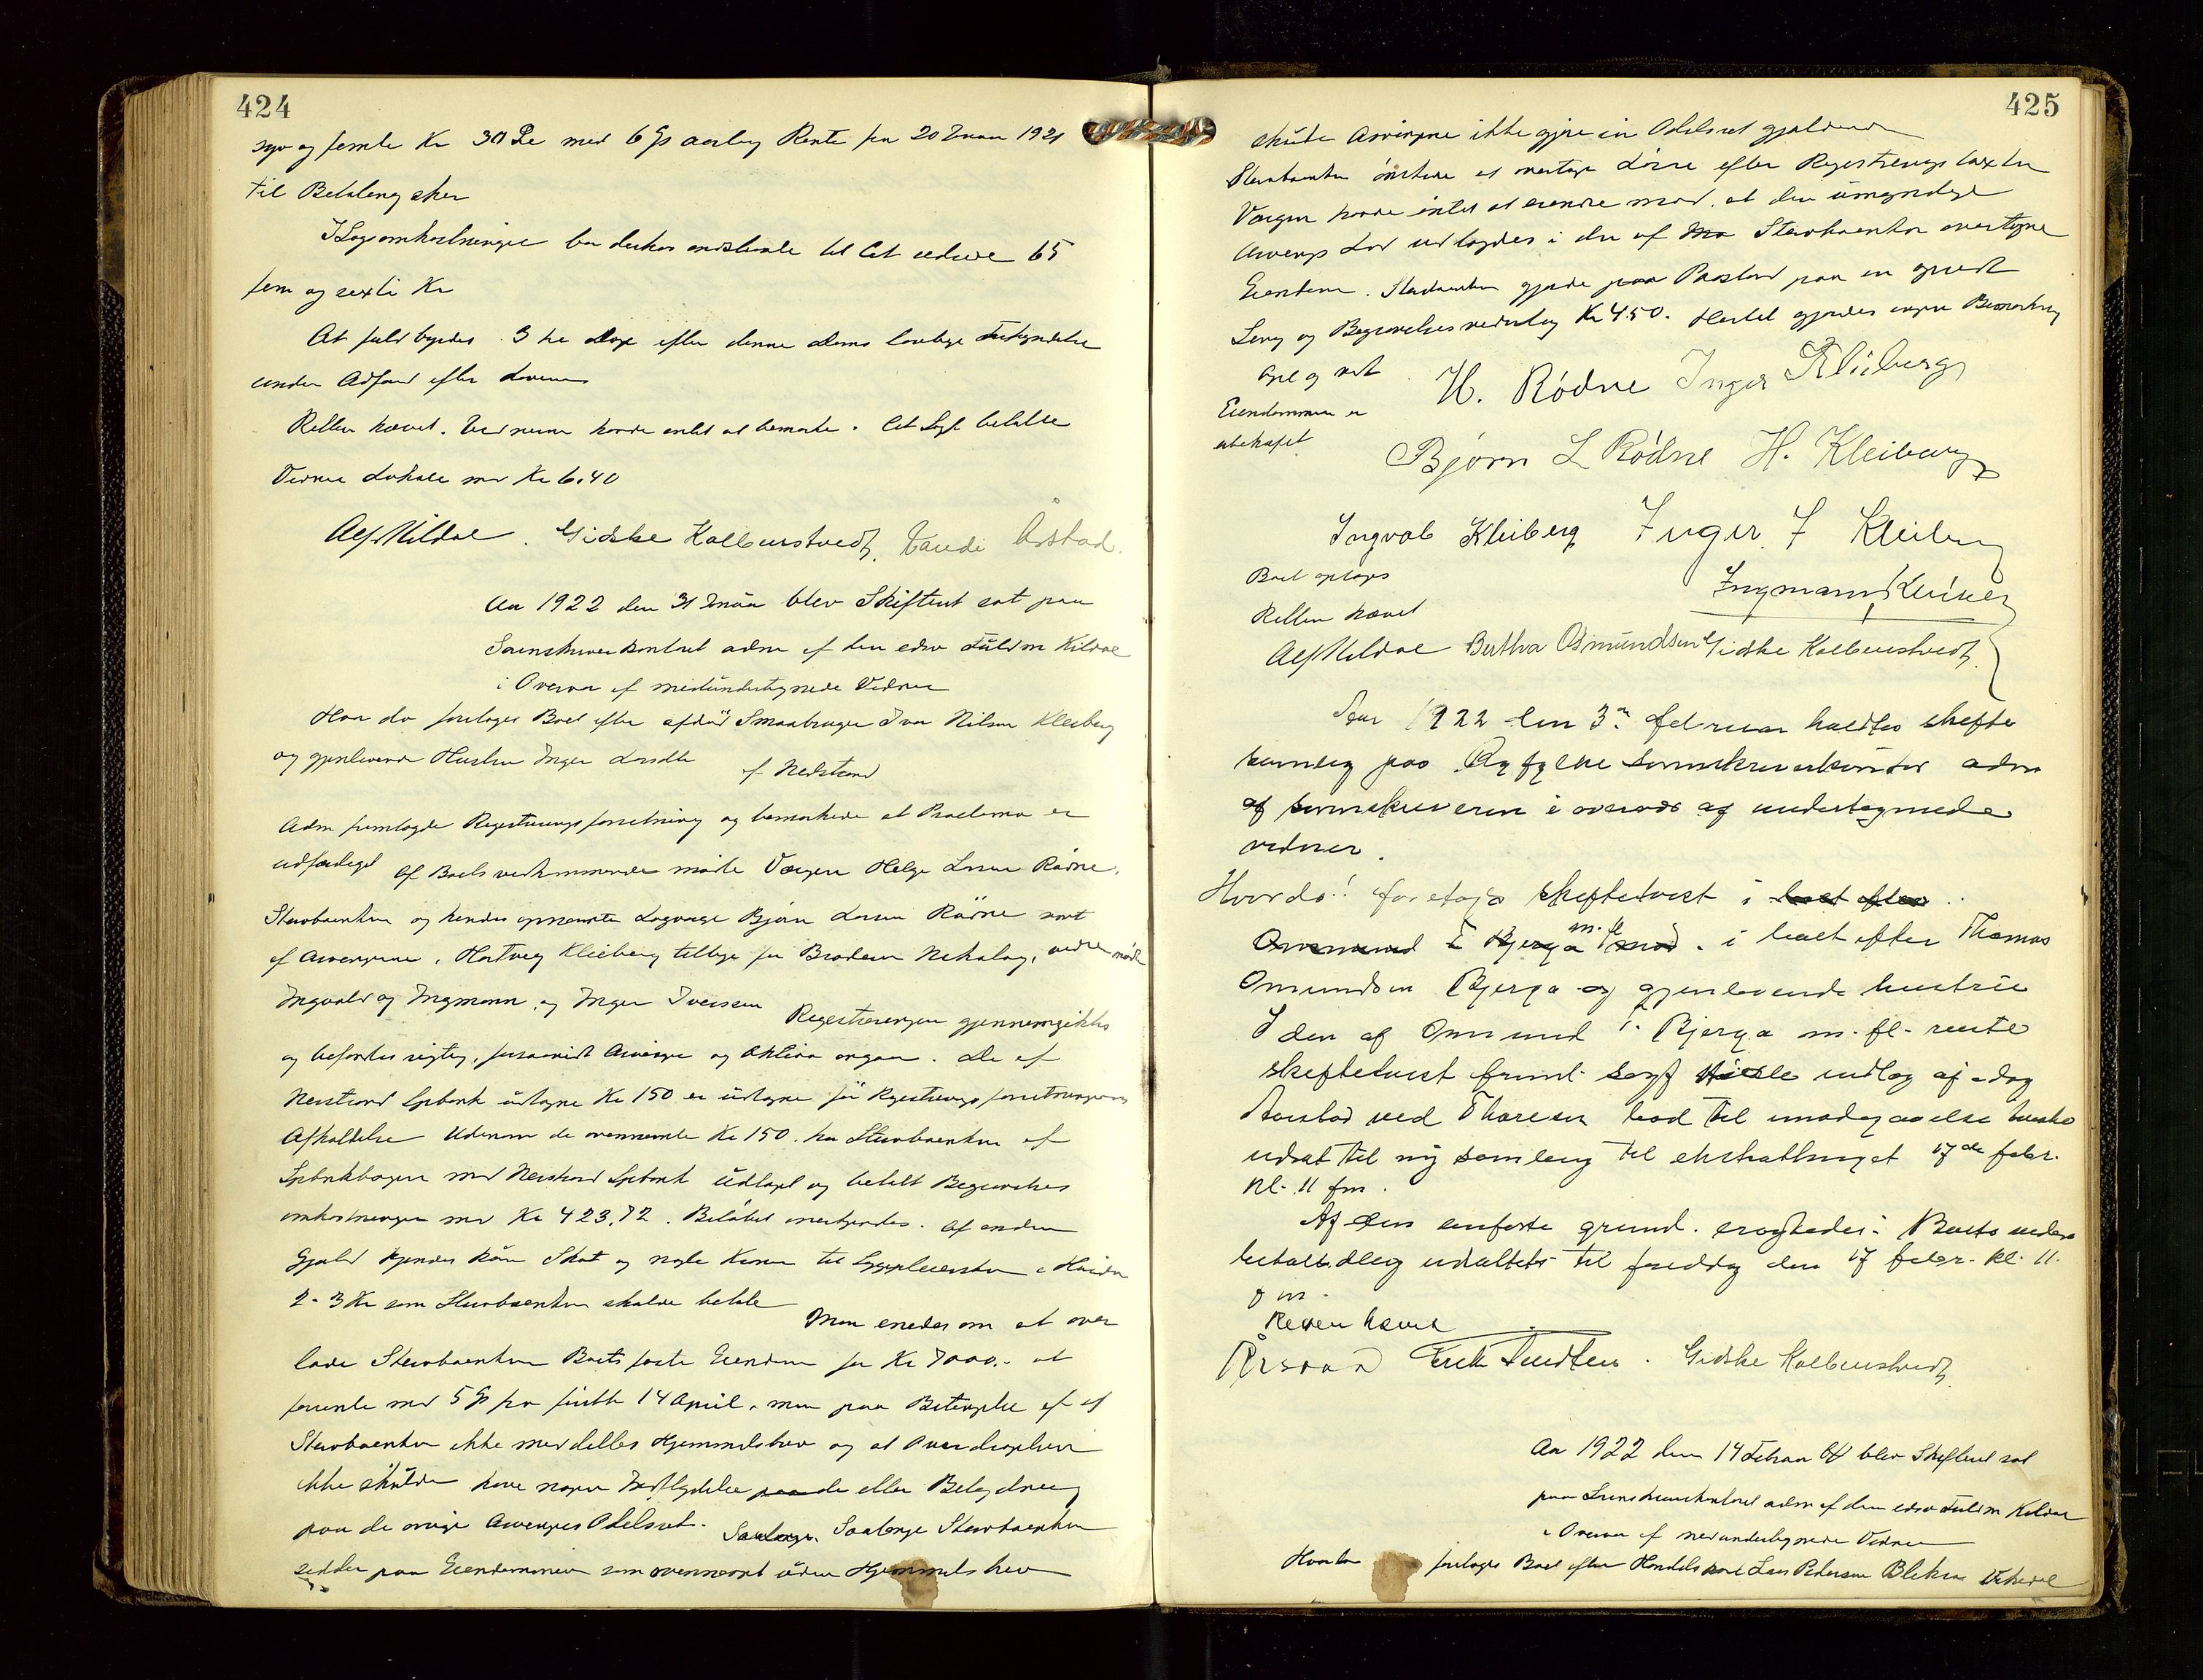 424
syv og femte Kr 30 Øre med 6 % aarlig Rente fra 20 Januar 1921
til Betaling sker
I Sagsomkostninger bør derhos indstevnte til Cit udrede 65
fem og sexti Kr
At fuldbyrdes 3 tre dage efter denne doms lovlige Forkyndelse
under Adfærd efter Loven
Retten hævet. Vidnerne havde intet at bemærke. Cit Sagf betalte
Vidner Lokale med Kr 6,40
Alf Kildal. Gidske Kolbenstvedt. Vandi Årstad.
Aar 1922 den 31 Januar blev Skifteret sat paa
Sorenskriverkontoret adm af den edsv Fuldm Kildal
i Overvær af medundertegnede Vidner
Hvor da foretoges Boet efter afdød Smaabruger Iver Nilsen Kleiberg
og gjenlevende Hustru Inger Larsdtr
af Nedstrand
Adm fremlagde Registreringsforretning og bemærkede at Proclama er
udfærdiget Af Boets vedkommende mødte Værgen Helge Larsen Rødne.
Stervboenken og hendes opnævnte Lagværge Bjørn Larsen Rødne samt
af Arvingerne, Hartvig Kleiberg tillige for Broderen Nikolay, videre mødte
Ingvald og Ingmann, og Inger Iversen
Registreringen gjennemgikks
og befandtes rigtig, forsaavidt Arvinger og Aktiva angaar. De af
Nerstrand Spbank udtagne Kr 150 er udtagne før Registreringsforretningens
Afholdelse Udenom de ovennævnte Kr 150. har Stervboenken af
Spbankbogen med Nerstrand Spbank udtaget og betalt Begravelses
omkostninger med Kr 423,72. Beløbet anerkjendtes. Af anden
Gjæld kjendes kun Skat og nogle Kroner til Sygepleiersken i Hinder
2-3 Kr som Stervboenken skulde betale
Man enedes om at over
lade Stervboenken Boets faste Eiendom for Kr 7000,- at
forrente med 5 % fra førstk 14 April, men paa Betingelse af at
Stervboenken ikke meddelles Hjemmelsbrev og at Overdragelsen
ikke skulde have nogen Indflydelse paa de eller Betydning
paa de øvrige Arvingers Odelsret. Saalænge. Saalænge Stervboenken
sidder paa Eiendommen som ovennævnt uden Hjemmelsbrev
425
skulde Arvingerne ikke gjøre sin Odelsret gjældende
Stervboenken ønskede at overtage Løsøre efter Registreringstaxten
Værgen havde intet at erindre mod, at den umyndige
Arvings Lod udlagdes i den af Stervboenken overtagne
Eiendom. Stervboenken gjorde Paastand paa en
og Begravelsesvederlag Kr 450. Hertil gjordes ingen Bemærkning
Opl og vedt
Eiendommen er
ubehæftet
H. Rødne Inger Kleiberg
Bjørn L Rødne H. Kleiberg
Ingvald Kleiberg Inger I Kleiberg
Boet optages
Ingmann Kleiberg
Retten hævet
Alf Kildal Bertha Osmundsen Gidske Kolbenstvedt
Aar 1922 den 3. februar holdtes skifte
samling paa Ryfylke Sorenskriverkontor adm
af sorenskriveren i overvær af undertegnede
vidner.
Hvorda: foretoges skiftetvist i boet efter
Ommund T Bjerga m. fl. mod. i boet efter Thomas
Omundsen Bjerga og gjenlevende hustru
I den af Ommund T. Bjerga m. fl. reiste
skiftetvist freml sagf indlæg af idag
Aarstad ved Thorsen bad til imødegaaelse
udsat til ny samling til ekstrathinget 17de febr.
kl. 11 fm.
Af den anførte grund. Boets
behandling udsattes til fredag den 17 febr. kl. 11.
fm.
Retten hævet
Årstad Erik Knudsen. Gidske Kolbenstvedt
Aar 1922 den 14 Februar blev Skifteret sat
paa Sorenskriverkontoret adm af den edsv Fuldm Kildal
i Overvær af medundertegnede Vidner
Hvor da foretoges Boet efter Handelsmand Lars Pedersen Vikedal